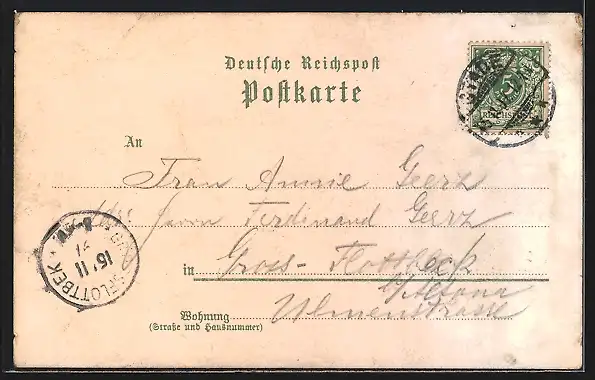 Deutsche Reichspost
Postkarte
STADE
5
REICHSPOST
An
Frau Annie Geerz
Herrn Ferdinand Geerz
in Gross-Flottbeck
b/Altona
Wohnung Ulmenstrasse
(Straße und Hausnummer)
FLOTTBEK
15 11